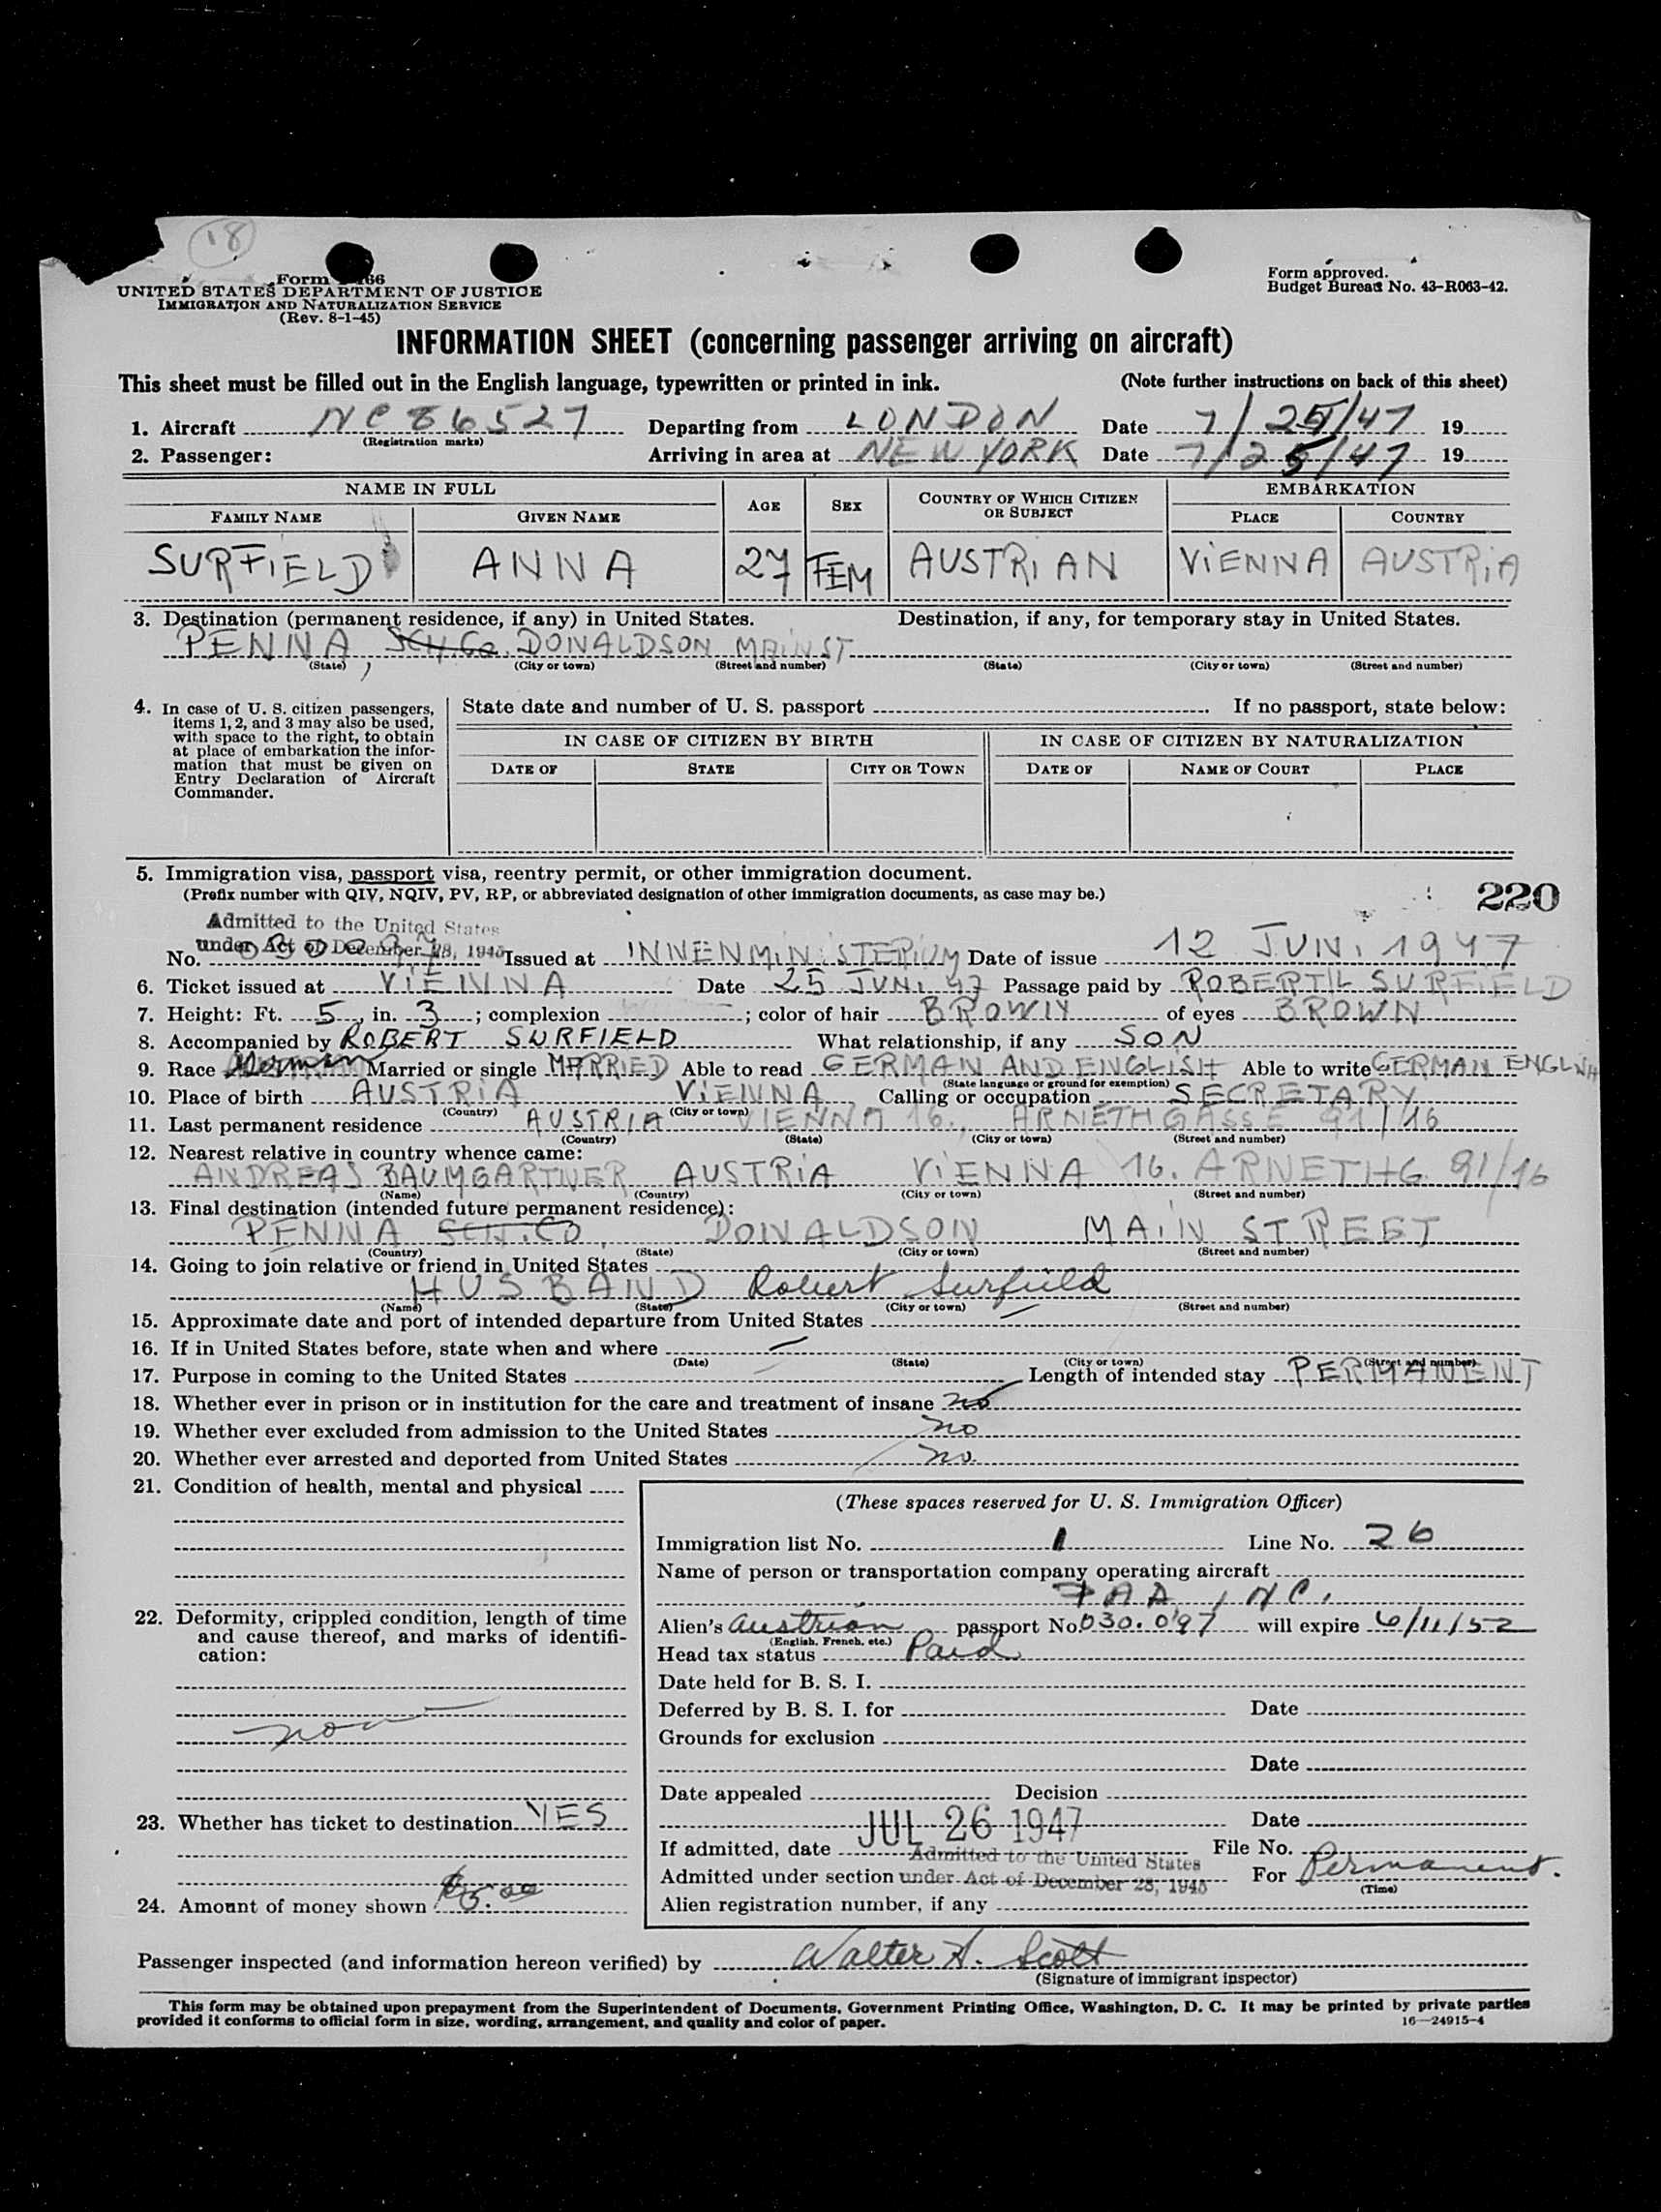 18
Form 66
UNITED STATES DEPARTMENT OF JUSTICE
IMMIGRATION AND NATURALIZATION SERVICE
(Rev. 8-1-45)
Form approved.
Budget Bureau No. 43-R063-42.
INFORMATION SHEET (concerning passenger arriving on aircraft)
This sheet must be filled out in the English language, typewritten or printed in ink. (Note further instructions on back of this sheet)
1. Aircraft NC 86527 Departing from LONDON Date 7/25/47 19
(Registration marks)
2. Passenger: Arriving in area at NEW YORK Date 7/25/47 19
NAME IN FULL AGE SEX COUNTRY OF WHICH CITIZEN OR SUBJECT EMBARKATION
FAMILY NAME GIVEN NAME PLACE COUNTRY
SURFIELD ANNA 27 FEM AUSTRIAN VIENNA AUSTRIA
3. Destination (permanent residence, if any) in United States. Destination, if any, for temporary stay in United States.
PENNA, SCH.Co. DONALDSON MAIN ST
(State) (City or town) (Street and number) (State) (City or town) (Street and number)
4. In case of U. S. citizen passengers,
items 1, 2, and 3 may also be used,
with space to the right, to obtain
at place of embarkation the infor-
mation that must be given on
Entry Declaration of Aircraft
Commander.
State date and number of U. S. passport If no passport, state below:
IN CASE OF CITIZEN BY BIRTH IN CASE OF CITIZEN BY NATURALIZATION
DATE OF STATE CITY OR TOWN DATE OF NAME OF COURT PLACE
5. Immigration visa, passport visa, reentry permit, or other immigration document.
(Prefix number with QIV, NQIV, PV, RP, or abbreviated designation of other immigration documents, as case may be.)
220
Admitted to the United States
under Act of December 28, 1945
No. Issued at INNENMINISTERIUM Date of issue 12 JUNI 1947
6. Ticket issued at VIENNA Date 25 JUNI 47 Passage paid by ROBERT L SURFIELD
7. Height: Ft. 5, in. 3; complexion ; color of hair BROWN of eyes BROWN
8. Accompanied by ROBERT SURFIELD What relationship, if any SON
9. Race German Married or single MARRIED Able to read GERMAN AND ENGLISH Able to write GERMAN ENGLISH
(State language or ground for exemption)
10. Place of birth AUSTRIA VIENNA Calling or occupation SECRETARY
(Country) (City or town)
11. Last permanent residence AUSTRIA VIENNA 16., ARNETHGASSE 91/16
(Country) (State) (City or town) (Street and number)
12. Nearest relative in country whence came:
ANDREAS BAUMGARTNER AUSTRIA VIENNA 16. ARNETHG. 91/16
(Name) (Country) (City or town) (Street and number)
13. Final destination (intended future permanent residence):
PENNA SCH.CO, DONALDSON MAIN STREET
(Country) (State) (City or town) (Street and number)
14. Going to join relative or friend in United States
HUSBAND Robert Surfield
(Name) (State) (City or town) (Street and number)
15. Approximate date and port of intended departure from United States —
16. If in United States before, state when and where —
(Date) (State) (City or town) (Street and number)
17. Purpose in coming to the United States Length of intended stay PERMANENT
18. Whether ever in prison or in institution for the care and treatment of insane no
19. Whether ever excluded from admission to the United States no
20. Whether ever arrested and deported from United States no.
21. Condition of health, mental and physical
22. Deformity, crippled condition, length of time
and cause thereof, and marks of identifi-
cation:
23. Whether has ticket to destination YES
24. Amount of money shown
(These spaces reserved for U. S. Immigration Officer)
Immigration list No. 1 Line No. 26
Name of person or transportation company operating aircraft
INC.
Alien's Austrian passport No. 030.097 will expire 6/11/52
(English, French, etc.)
Head tax status Paid
Date held for B. S. I.
Deferred by B. S. I. for Date
Grounds for exclusion
Date
Date appealed Decision
JUL 26 1947 Date
If admitted, date File No.
Admitted to the United States
Admitted under section under Act of December 28, 1945 For Permanent.
(Time)
Alien registration number, if any
Passenger inspected (and information hereon verified) by Walter A. Scott
(Signature of immigrant inspector)
This form may be obtained upon prepayment from the Superintendent of Documents, Government Printing Office, Washington, D. C. It may be printed by private parties
provided it conforms to official form in size, wording, arrangement, and quality and color of paper. 16—24915-4